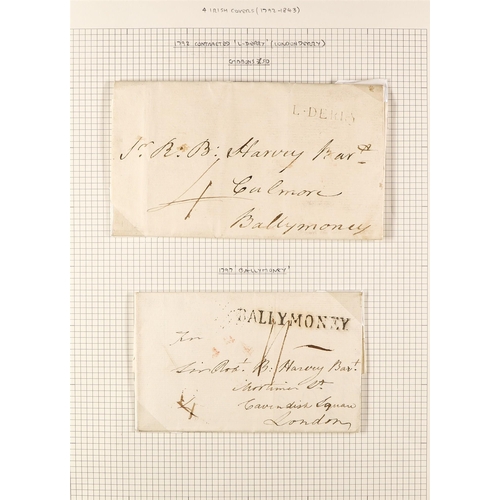 4 IRISH COVERS (1797-1843)
1798 CONTRACTED "L-DERRY" (LONDONDERRY)
L-DERRY
Sr. R. B: Harvey Bart
4
Culmore
Ballymoney
1797 'BALLYMONEY'
BALLYMONEY
For
Sir Robt. B: Harvey Bart.
Mortimer St
Cavendish Square
London